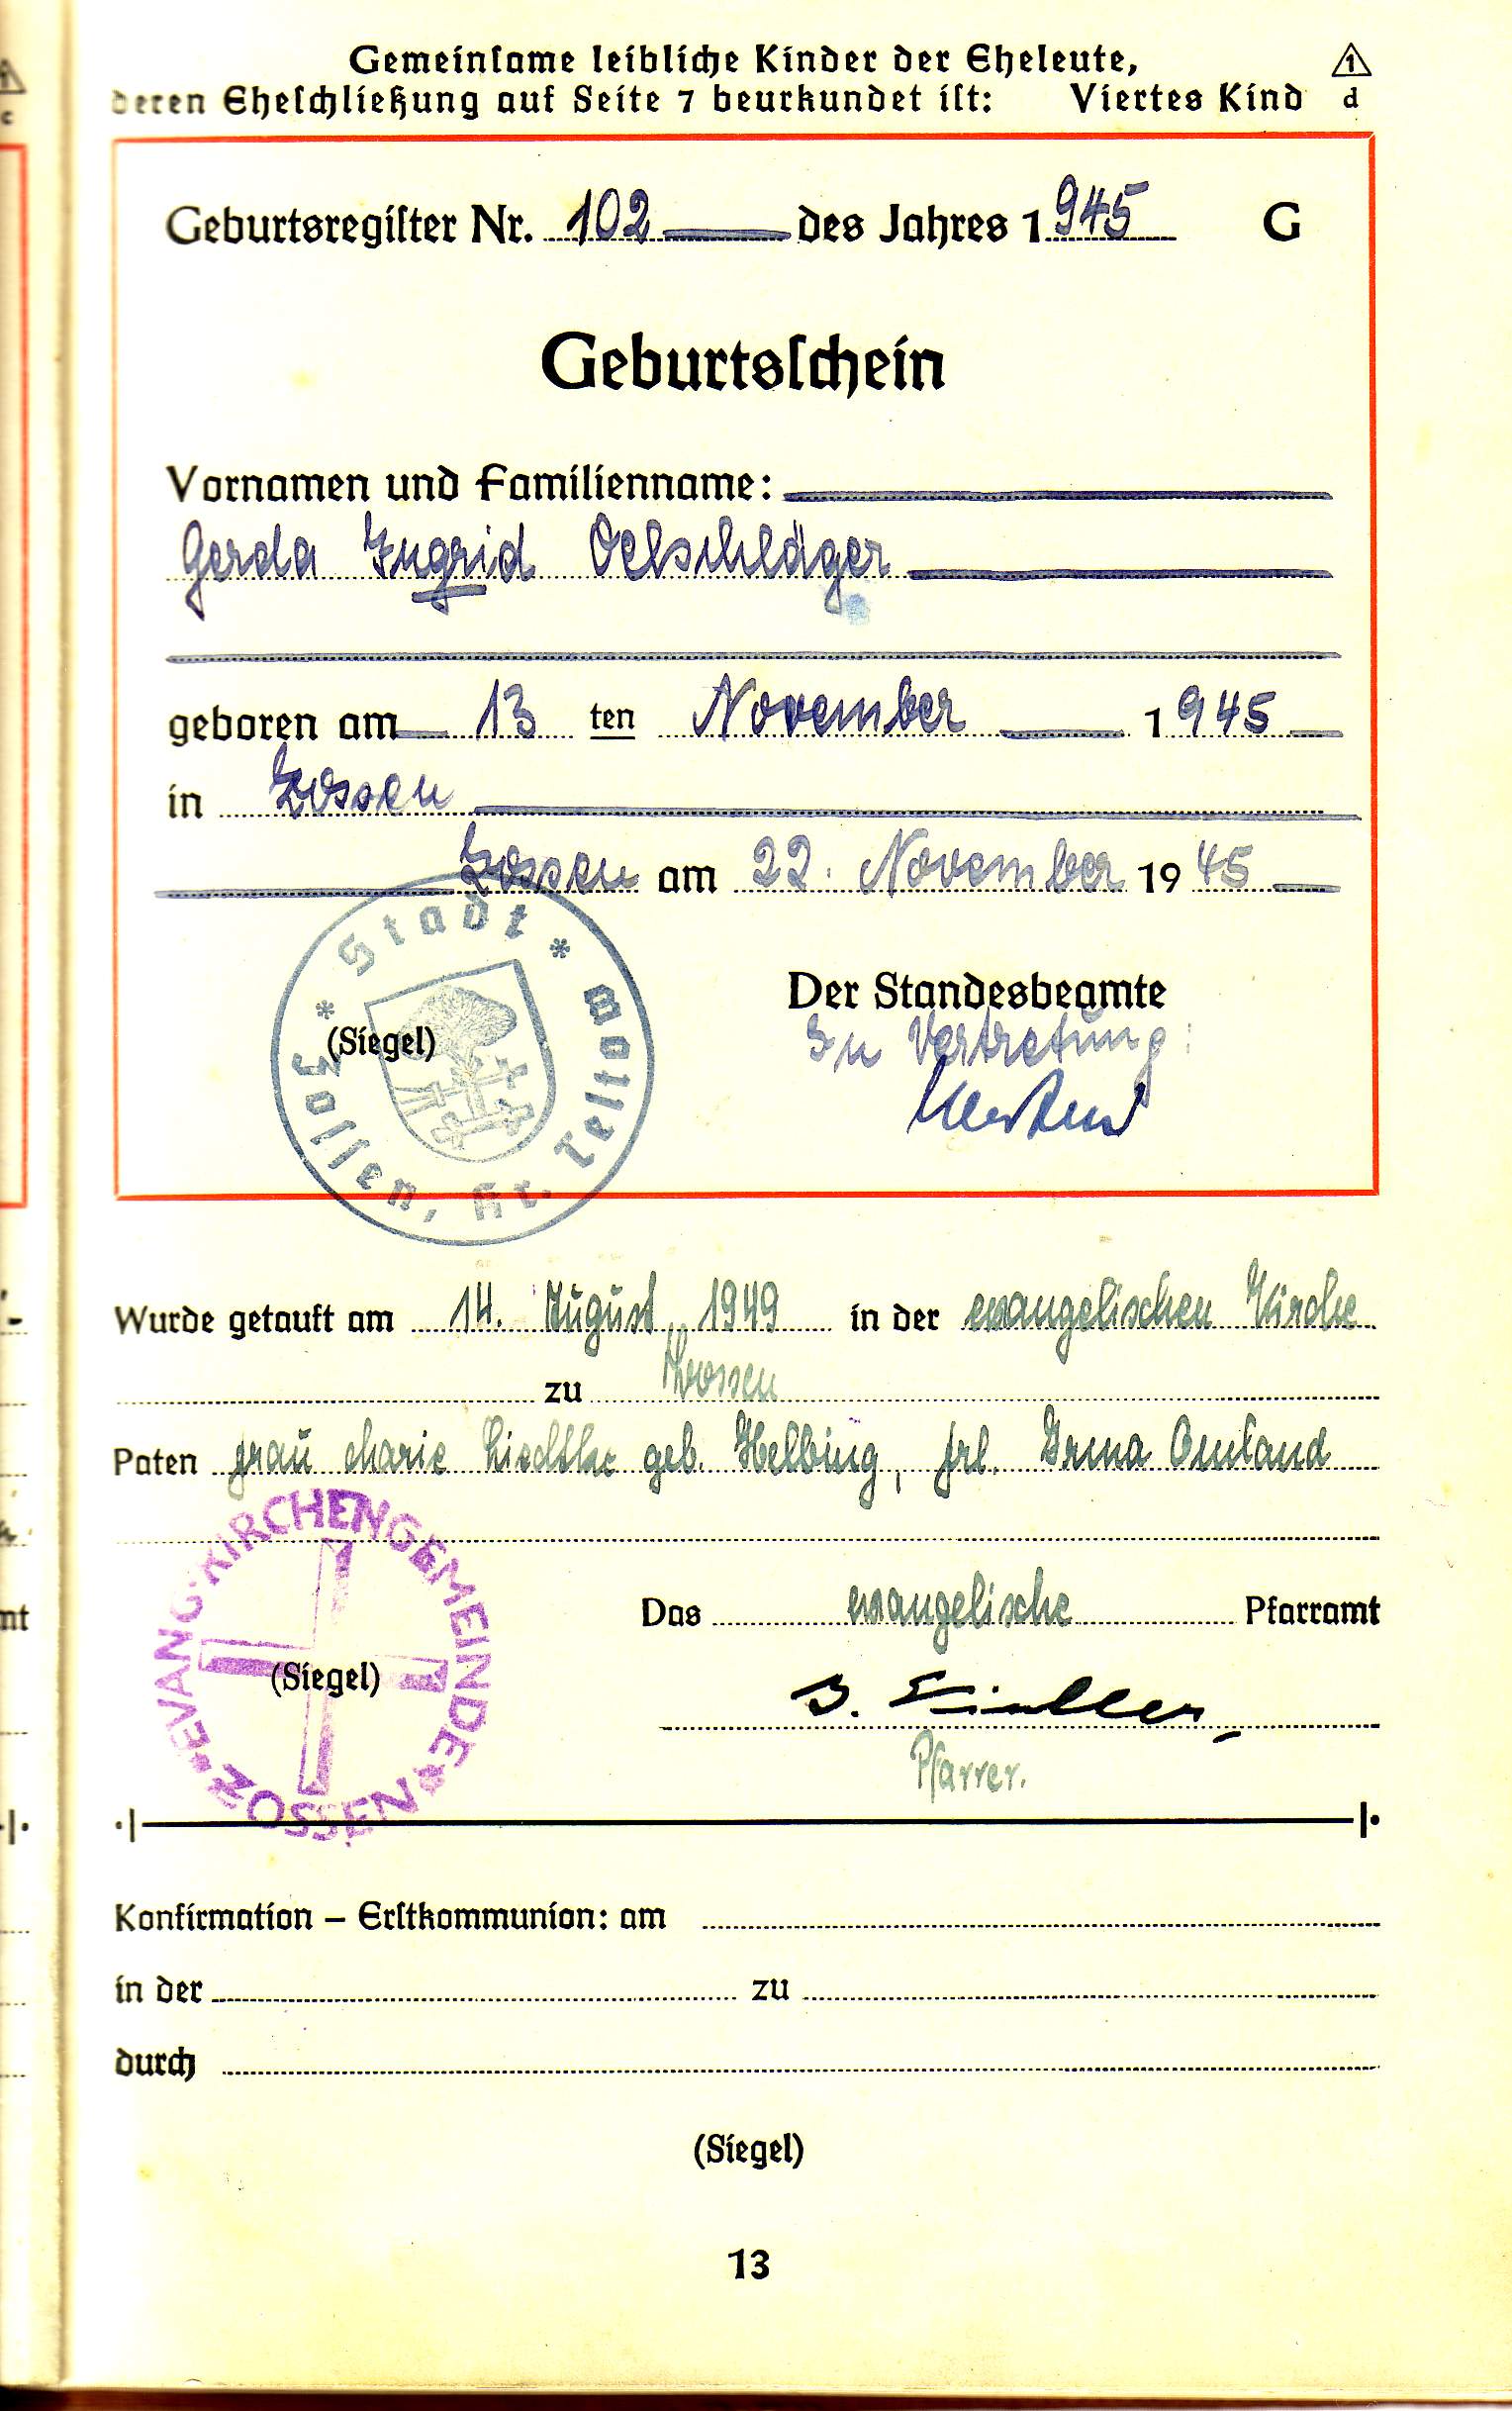 Gemeinsame leibliche Kinder der Eheleute,
deren Eheschließung auf Seite 7 beurkundet ist: Viertes Kind
1
d
Geburtsregister Nr. 102 des Jahres 1945 G
Geburtsschein
Vornamen und Familienname:
Gerda Ingrid Oelschläger
geboren am 13 ten November 1945
in Zossen
Zossen am 22. November 1945
* Stadt * Zossen, Kr. Teltow
Der Standesbeamte
(Siegel)
In Vertretung:
Wurde getauft am 14. August 1949 in der evangelischen Kirche
zu Zossen
Paten Frau Marie geb. Helbing, Frl. Irma
EVANG. KIRCHENGEMEINDE * ZOSSEN *
Das evangelische Pfarramt
(Siegel)
Pfarrer.
Konfirmation – Erstkommunion: am
in der zu
durch
(Siegel)
13
c
nt